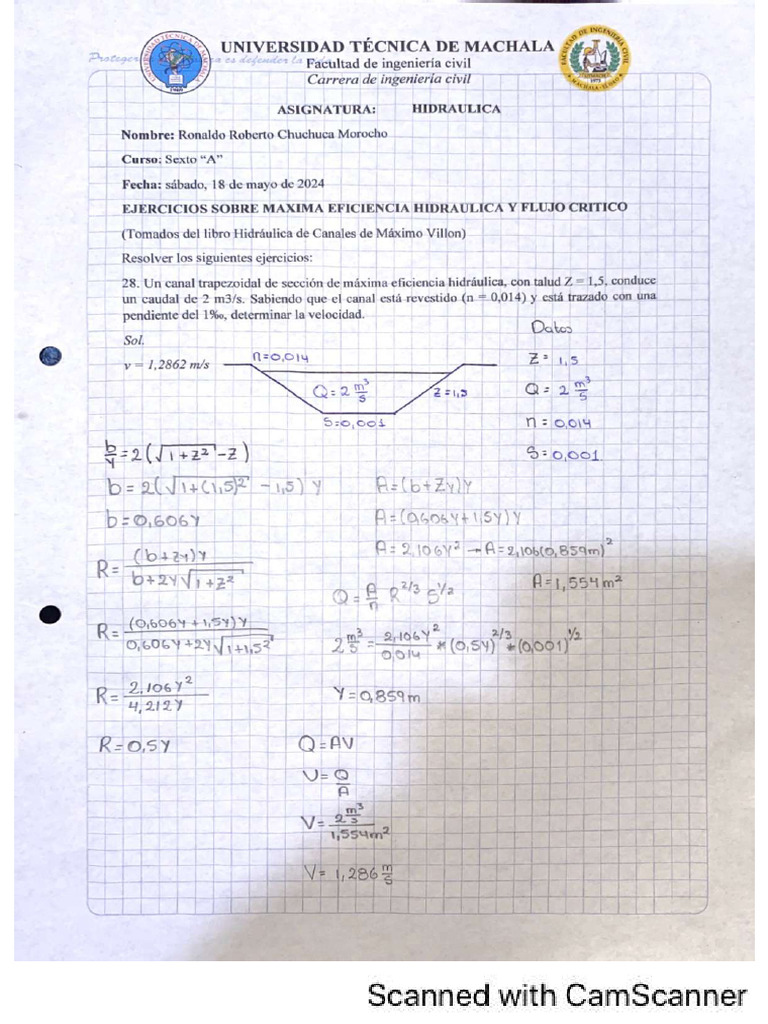 UNIVERSIDAD TÉCNICA DE MACHALA
Facultad de ingeniería civil
Carrera de ingeniería civil
ASIGNATURA: HIDRAULICA
Nombre: Ronaldo Roberto Chuchuca Morocho
Curso: Sexto “A”
Fecha: sábado, 18 de mayo de 2024
EJERCICIOS SOBRE MAXIMA EFICIENCIA HIDRAULICA Y FLUJO CRITICO
(Tomados del libro Hidráulica de Canales de Máximo Villon)
Resolver los siguientes ejercicios:
28. Un canal trapezoidal de sección de máxima eficiencia hidráulica, con talud Z = 1,5, conduce
un caudal de 2 m3/s. Sabiendo que el canal está revestido (n = 0,014) y está trazado con una
pendiente del 1‰, determinar la velocidad.
Datos
Sol.
v = 1,2862 m/s
n=0,014
Q= 2 m³/s
Z=1,5
S=0,001
Z= 1,5
Q= 2 m³/s
n= 0,014
S= 0,001
b/y = 2(√1+Z² -Z)
b= 2(√1+(1,5)² -1,5) y
b=0,606y
A=(b+Zy)y
A=(0,606y+1,5y)y
A= 2,106y² → A=2,106(0,859m)²
A=1,554m²
R= (b+zy)y / b+2y√1+z²
Q= A/n R^2/3 S^1/2
R= (0,606y+1,5y)y / 0,606y+2y√1+1,5²
2 m³/s = 2,106y²/0,014 * (0,5y)^2/3 * (0,001)^1/2
R= 2,106y² / 4,212y
y=0,859m
R=0,5y
Q=AV
V= Q/A
V= 2 m³/s / 1,554m²
V= 1,286 m/s
Scanned with CamScanner